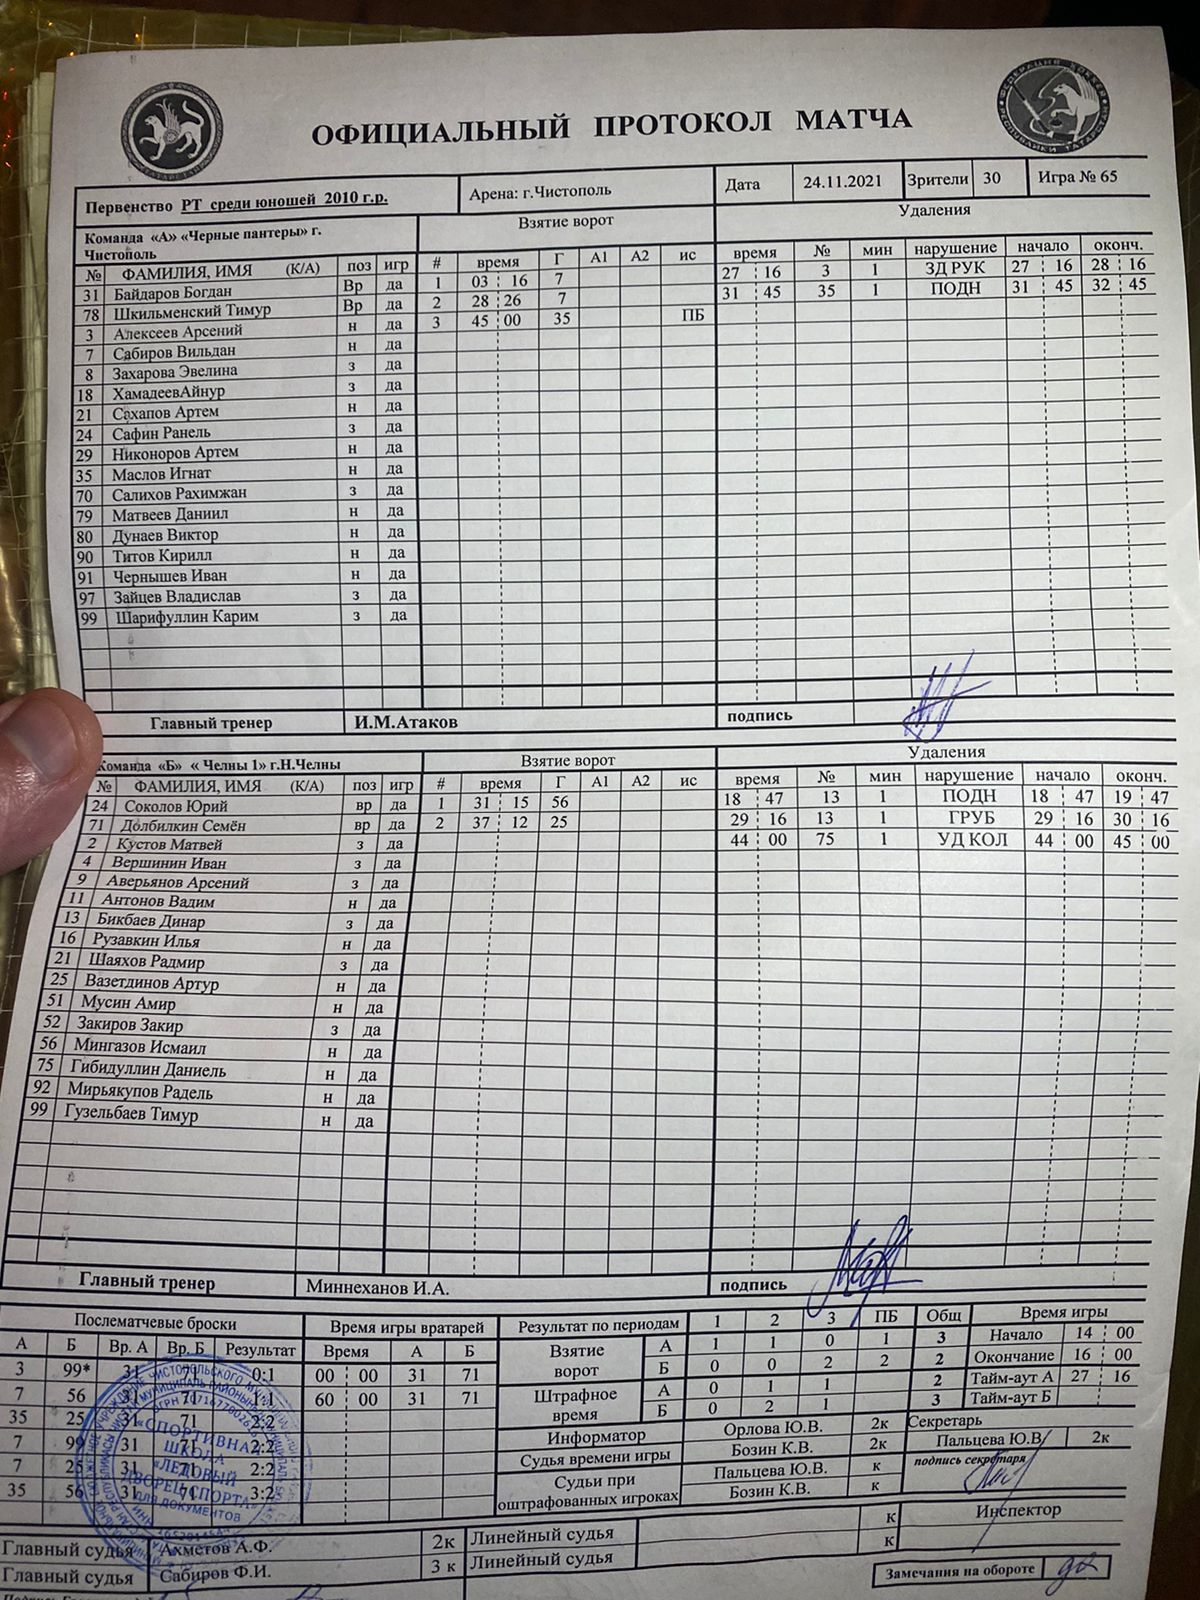 ОФИЦИАЛЬНЫЙ ПРОТОКОЛ МАТЧА
ФЕДЕРАЦИЯ ХОККЕЯ РЕСПУБЛИКИ ТАТАРСТАН
ТАТАРСТАН
Первенство РТ среди юношей 2010 г.р. Арена: г.Чистополь Дата 24.11.2021 Зрители 30 Игра № 65
Команда «А» «Черные пантеры» г. Чистополь Взятие ворот Удаления
№ ФАМИЛИЯ, ИМЯ (К/А) поз игр # время Г А1 А2 ис время № мин нарушение начало оконч.
31 Байдаров Богдан Вр да 1 03 16 7 27 16 3 1 ЗД РУК 27 16 28 16
78 Шкильменский Тимур Вр да 2 28 26 7 31 45 35 1 ПОДН 31 45 32 45
3 Алексеев Арсений н да 3 45 00 35 ПБ
7 Сабиров Вильдан н да
8 Захарова Эвелина з да
18 ХамадеевАйнур з да
21 Сахапов Артем н да
24 Сафин Ранель з да
29 Никоноров Артем н да
35 Маслов Игнат н да
70 Салихов Рахимжан з да
79 Матвеев Даниил н да
80 Дунаев Виктор н да
90 Титов Кирилл н да
91 Чернышев Иван н да
97 Зайцев Владислав з да
99 Шарифуллин Карим з да
Главный тренер И.М.Атаков подпись
Команда «Б» « Челны 1» г.Н.Челны Взятие ворот Удаления
№ ФАМИЛИЯ, ИМЯ (К/А) поз игр # время Г А1 А2 ис время № мин нарушение начало оконч.
24 Соколов Юрий вр да 1 31 15 56 18 47 13 1 ПОДН 18 47 19 47
71 Долбилкин Семён вр да 2 37 12 25 29 16 13 1 ГРУБ 29 16 30 16
2 Кустов Матвей з да 44 00 75 1 УД КОЛ 44 00 45 00
4 Вершинин Иван з да
9 Аверьянов Арсений з да
11 Антонов Вадим н да
13 Бикбаев Динар з да
16 Рузавкин Илья н да
21 Шаяхов Радмир з да
25 Вазетдинов Артур н да
51 Мусин Амир н да
52 Закиров Закир з да
56 Мингазов Исмаил н да
75 Гибидуллин Даниель н да
92 Мирьякупов Радель н да
99 Гузельбаев Тимур н да
Главный тренер Миннеханов И.А. подпись
Послематчевые броски Время игры вратарей Результат по периодам 1 2 3 ПБ Общ Время игры
А Б Вр. А Вр. Б Результат Время А Б Взятие ворот А 1 1 0 1 3 Начало 14 00
3 99* 31 71 0:1 00 00 31 71 Б 0 0 2 2 2 Окончание 16 00
7 56 31 71 1:1 60 00 31 71 Штрафное время А 0 1 1 2 Тайм-аут А 27 16
35 25 31 71 2:2 Б 0 2 1 3 Тайм-аут Б
7 99 31 71 2:2 Информатор Орлова Ю.В. 2к Секретарь
7 25 31 71 2:2 Судья времени игры Бозин К.В. 2к Пальцева Ю.В 2к
35 56 31 71 3:2 Судьи при оштрафованных игроках Пальцева Ю.В. к подпись секретаря
Бозин К.В. к
«СПОРТИВНАЯ ШКОЛА «ЛЕДОВЫЙ ДВОРЕЦ СПОРТА»
ДЛЯ ДОКУМЕНТОВ
Главный судья Ахметов А.Ф. 2к Линейный судья к Инспектор
Главный судья Сабиров Ф.И. 3 к Линейный судья к
Замечания на обороте да